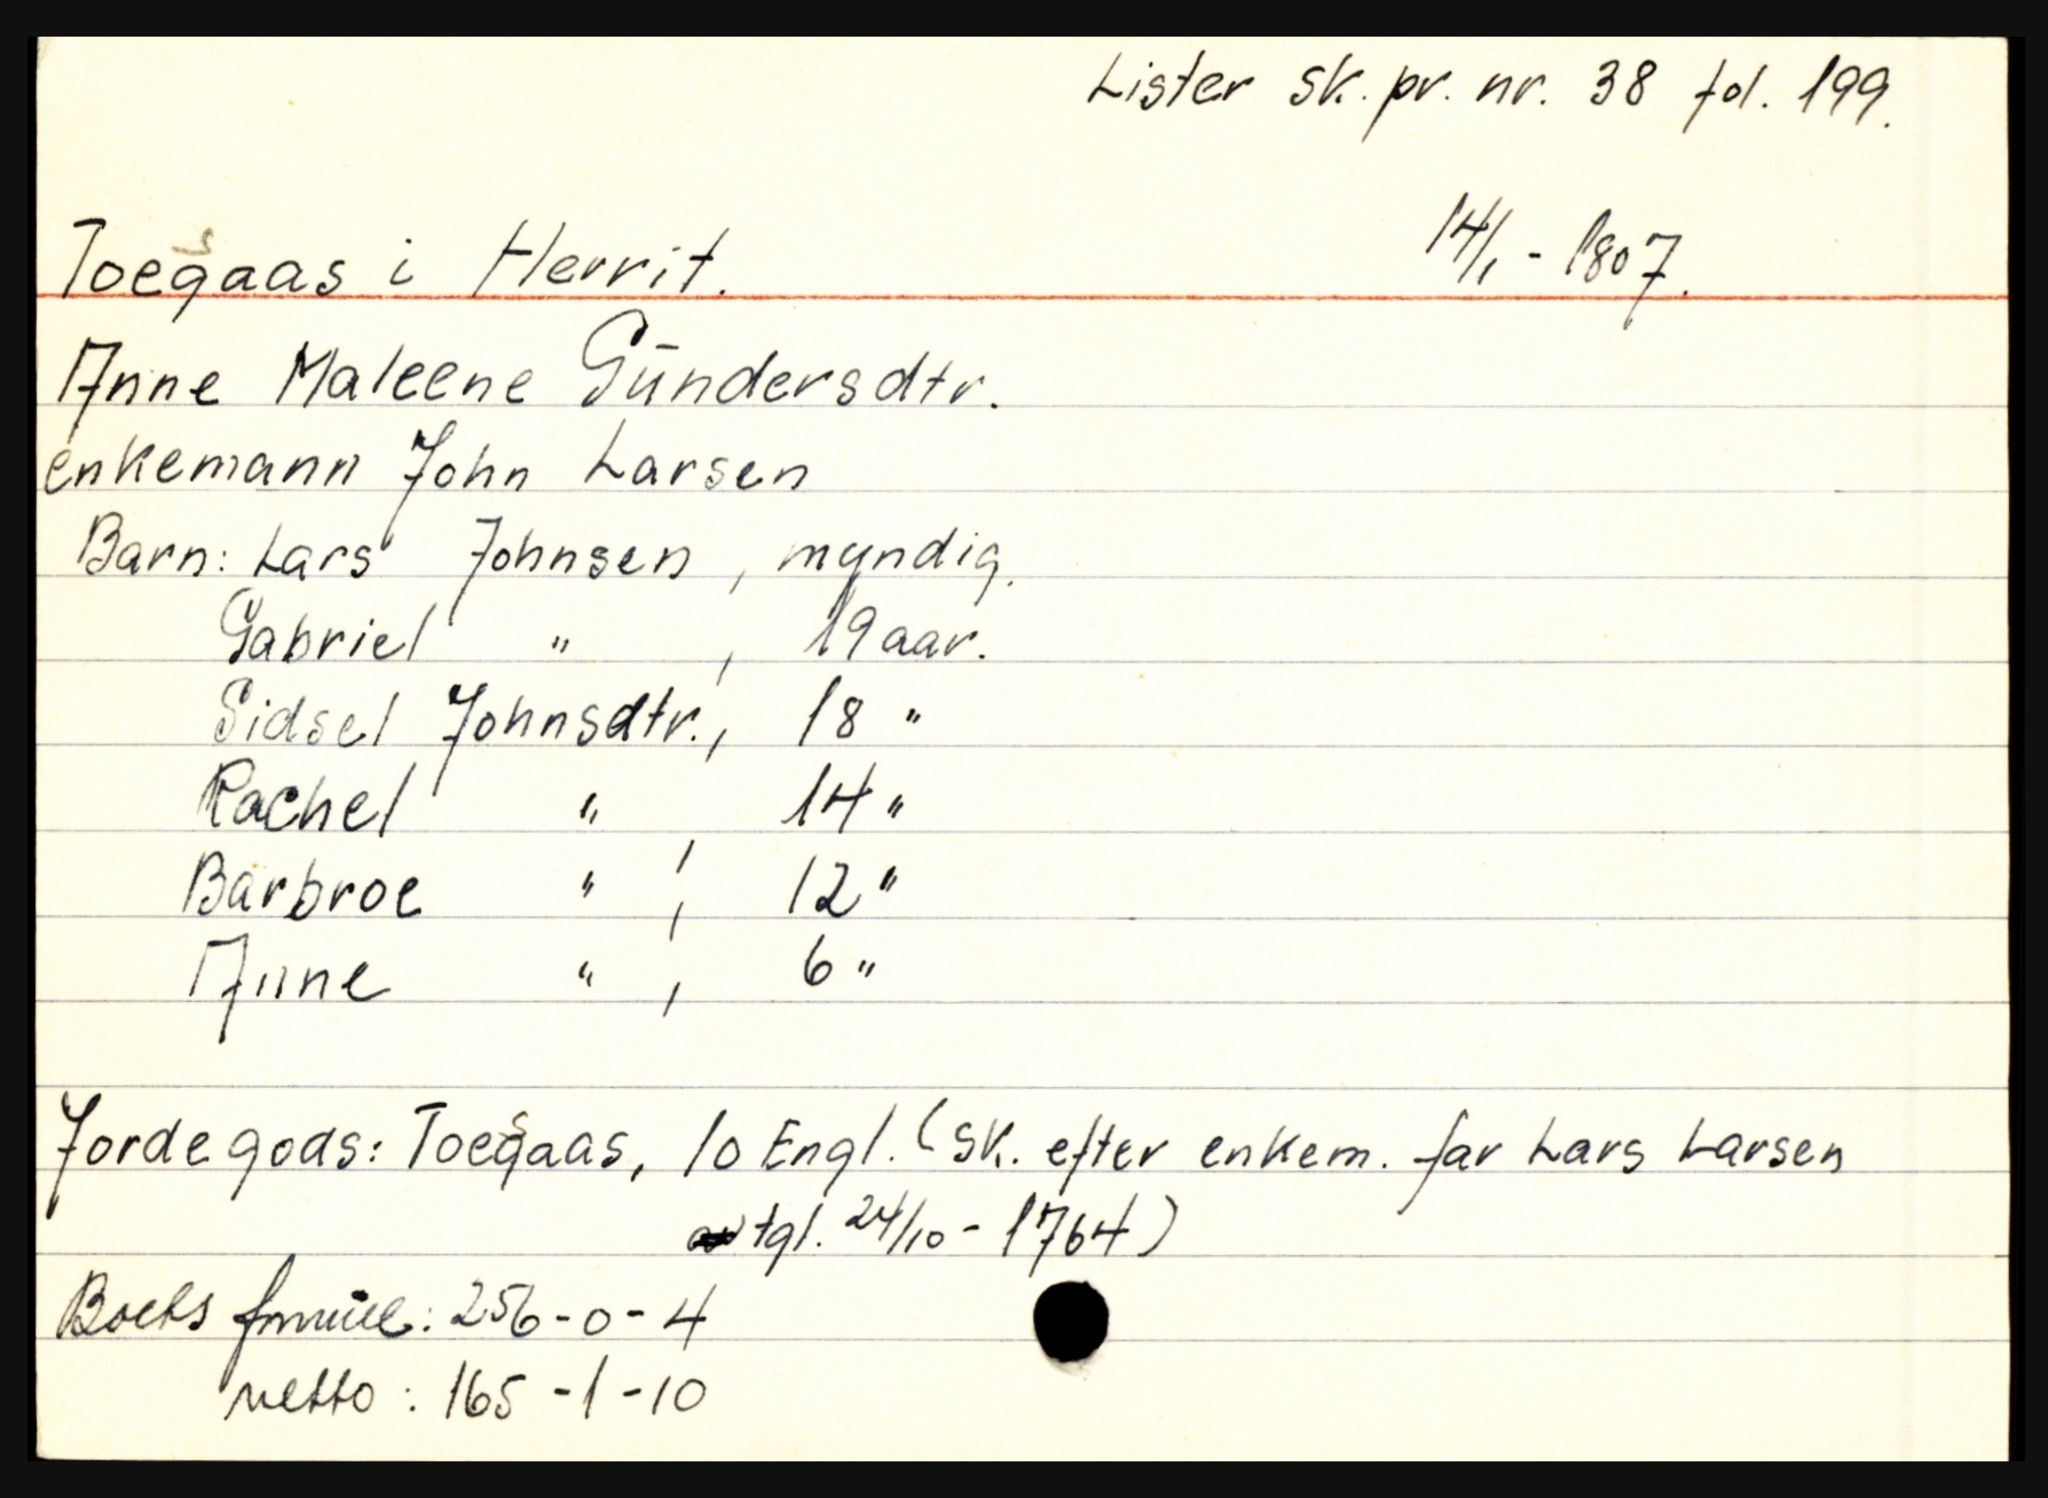 Lister sk. pr. nr. 38 fol. 199.
14/1 - 1807.
Toegaas i Herrit.
Anne Maleene Gūndersdtr.
enkemann John Larsen
Barn: Lars Johnsen, myndig.
Gabriel " , 19 aar.
Sidsel Johnsdtr., 18 "
Rachel " , 14 "
Barbroe " , 12 "
Anne " , 6 "
Jordegods: Toegaas, 10 Engl. (sk. efter enkem. far Lars Larsen
tgl. 24/10 - 1764)
Boets : 256-0-4
netto : 165-1-10